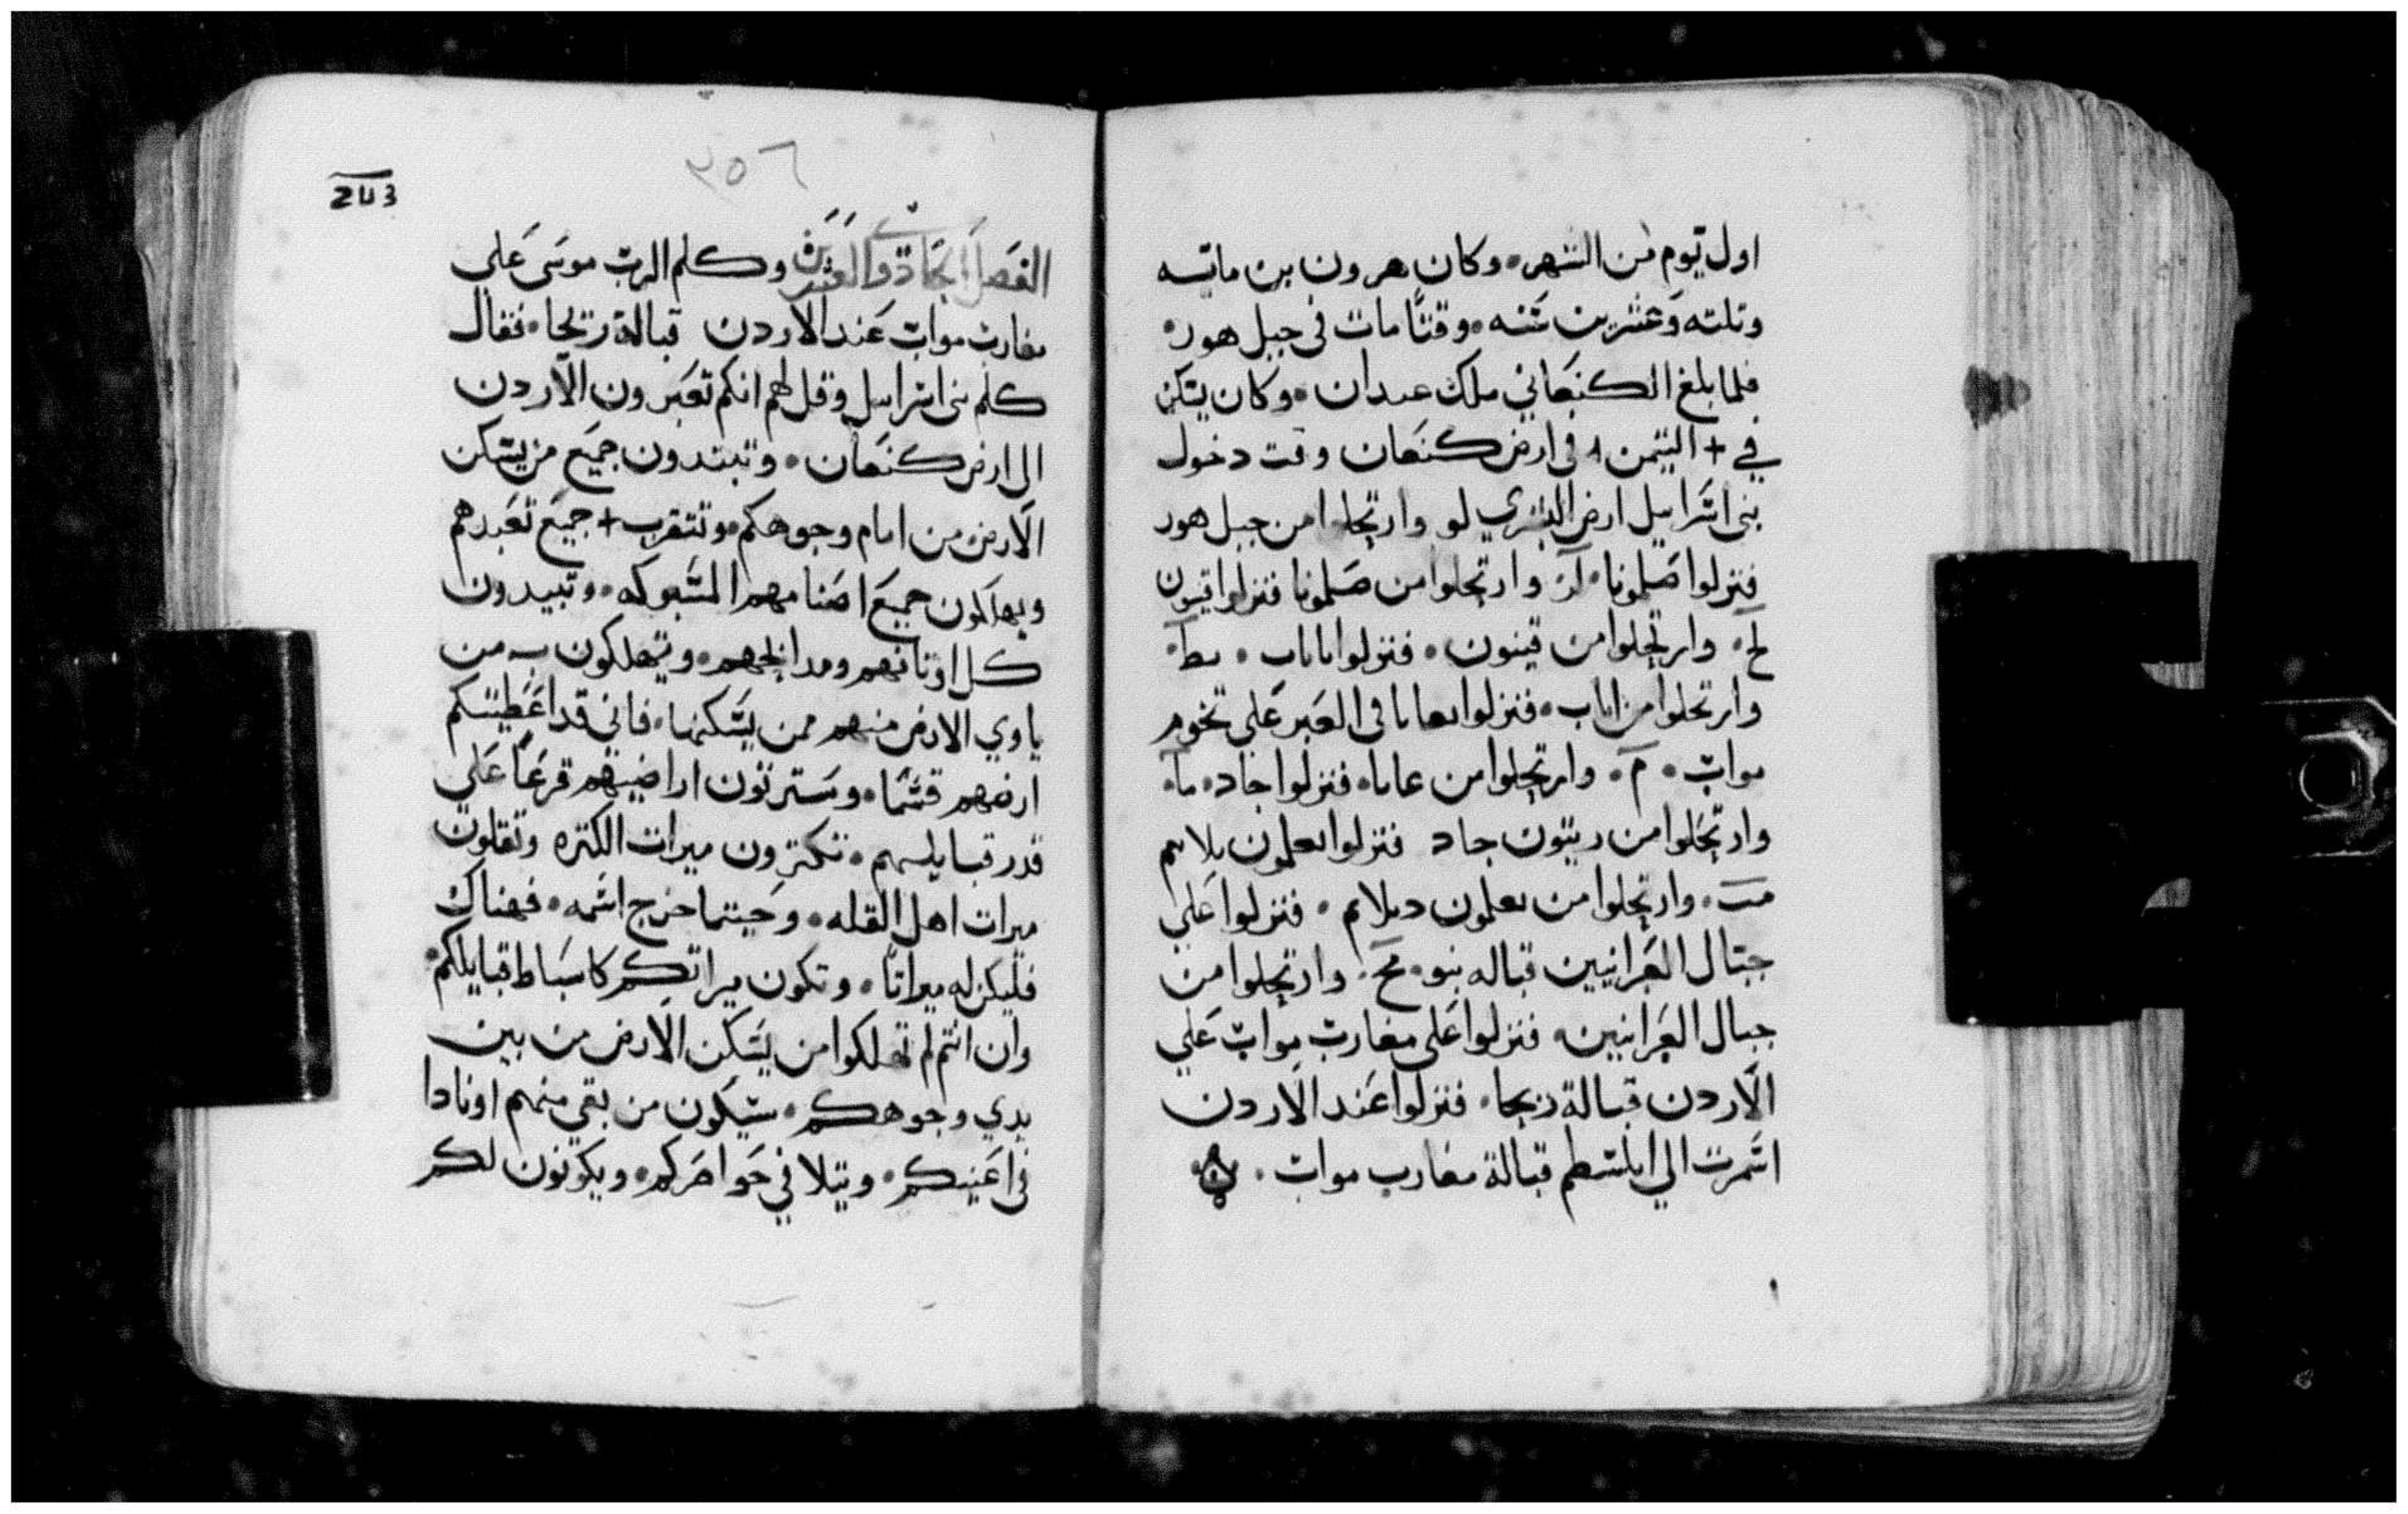 اول يوم من الشهر. وكان هرون بن مايه
وتلته وعشرين سنه. وقتا مات في جبل هور.
فلما بلغ الكنعاني ملك عبدان. وكان يسكن
في + التيمن في ارض كنعان وقت دخول
بني اسراييل ارض لو وارتحلوا من جبل هور
فنزلوا صلمونا. لز وارتحلوا من صلمونا فنزلوا قينون
لح. وارتحلوا من قينون. فنزلوا اباب. لط.
وارتحلوا من اباب. فنزلوا بعابا في العبر على تخوم
مواب. م. وارتحلوا من عابا. فنزلوا جاد. ما.
وارتحلوا من ريبون جاد فنزلوا بعلمون بلايم
مب. وارتحلوا من بعلمون دبلايم. فنزلوا على
جبال العبرانيين قباله نبو. مج. وارتحلوا من
جبال العبرانيين. فنزلوا على مغارب مواب على
الاردن قبالة ريحا. فنزلوا عند الاردن
اسمرت الي ابلسطم قبالة مغارب مواب.
٢٥٦
الفصل الحادي والعشرين وكلم الرب موسى على
مغارب مواب عند الاردن قبالة ريحا. فقال
كلم بني اسراييل وقل لهم انكم تعبرون الاردن
الى ارض كنعان. وتبيدون جميع من يسكن
الارض من امام وجوهكم. وتنتقرب + جميع تعبدهم
ويهلكون جميع اصنامهم المسبوكه. وتبيدون
كل اوثانهم ومدابحهم. وتهلكون من
ياوي الارض منهم ممن يسكنها. فاني قد اعطيتكم
ارضهم قسما. وسترتون اراضيهم قرعا على
قدر قبايلهم. تكترون ميرات الكتره وتقلون
ميرات اهل القله. وحيتما خرج اسمه. فهناك
فليكن له ميراتا. وتكون ميراتكم كاسباط قبايلكم.
وان انتم لم تهلكوا من يسكن الارض من بين
يدي وجوهكم. سيكون من بقي منهم اوتادا
في اعينكم. ونبلا في خواصركم. ويكونون لكم